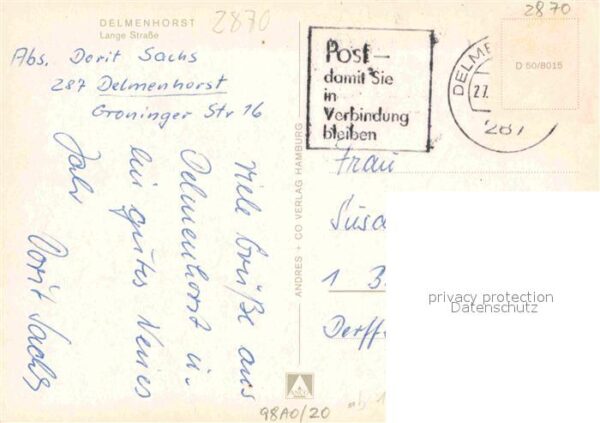 DELMENHORST
Lange Straße
2870
2870
Abs. Dorit Sachs
287 Delmenhorst
Groninger Str 16
Viele Grüße aus
Delmenhorst u.
ein gutes Neues
Jahr
Dorit Sachs
ANDRES + CO VERLAG HAMBURG
Post –
damit Sie
in
Verbindung
bleiben
DELME
27.
287
D 50/8015
Frau
Susa
1 B
Derff
privacy protection
Datenschutz
98A0/20